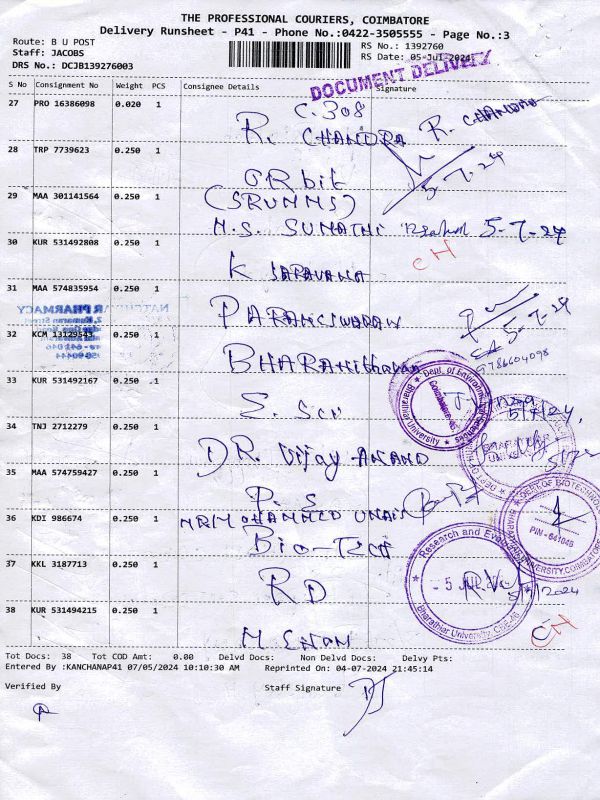 THE PROFESSIONAL COURIERS, COIMBATORE
Delivery Runsheet - P41 - Phone No.:0422-3505555 - Page No.:3
Route: B U POST
RS No.: 1392760
Staff: JACOBS
RS Date: 05-Jul-2024
DRS No.: DCJB139276003
DOCUMENT DELIVERY
S No Consignment No Weight PCS Consignee Details Signature
27 PRO 16386098 0.020 1
C.308
R. CHANDRA R. CHANDRA
28 TRP 7739623 0.250 1
ORbit
5-7-24
29 MAA 301141564 0.250 1
(SRUNMS)
M.S. SUMATHI 5-7-24
30 KUR 531492808 0.250 1
CH
K SARAVANA
31 MAA 574835954 0.250 1
PARAMESWARAN
5-7-24
32 KCM 13129543 0.250 1
R PHARMACY
9786604098
33 KUR 531492167 0.250 1
E. Sci
34 TNJ 2712279 0.250 1
DR. Vijay ANAND
35 MAA 574759427 0.250 1
P. S
36 KDI 986674 0.250 1
MR MOHAMMED UNAIS
Bio-Tech
DEPT OF BIOTECHNOLOGY
PIN - 641046
BHARATHIAR UNIVERSITY, COIMBATORE
37 KKL 3187713 0.250 1
RD
Research and Evaluation
5 JUL 2024
Bharathiar University, CBE-46
38 KUR 531494215 0.250 1
CH
Tot Docs: 38 Tot COD Amt: 0.00 Delvd Docs: Non Delvd Docs: Delvy Pts:
Entered By :KANCHANAP41 07/05/2024 10:10:30 AM Reprinted On: 04-07-2024 21:45:14
Verified By
Staff Signature